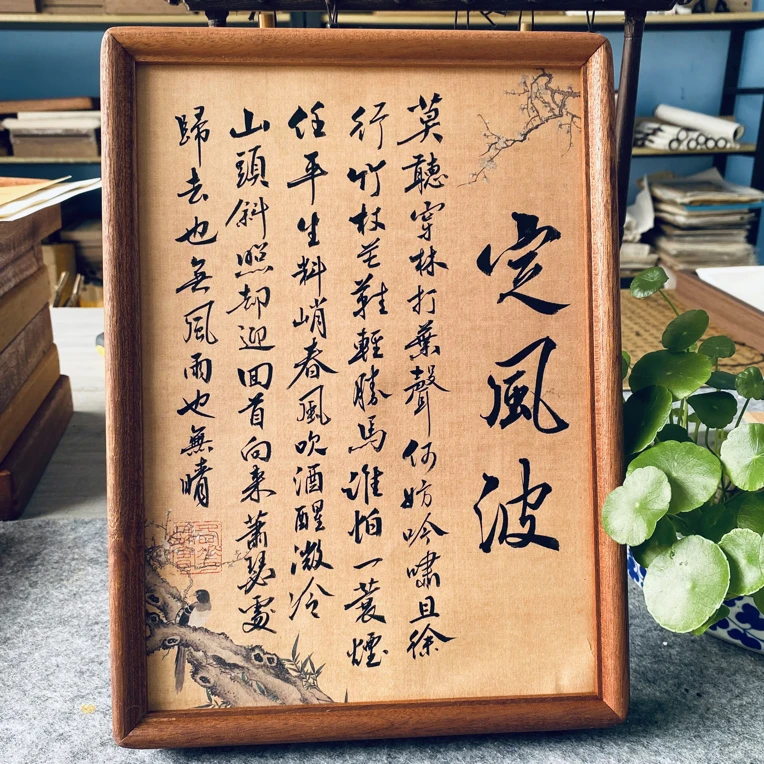 定風波
莫聽穿林打葉聲何妨吟嘯且徐
行竹杖芒鞋輕勝馬誰怕一蓑煙
任平生料峭春風吹酒醒微冷
山頭斜照却迎回首向来蕭瑟處
歸去也無風雨也無晴